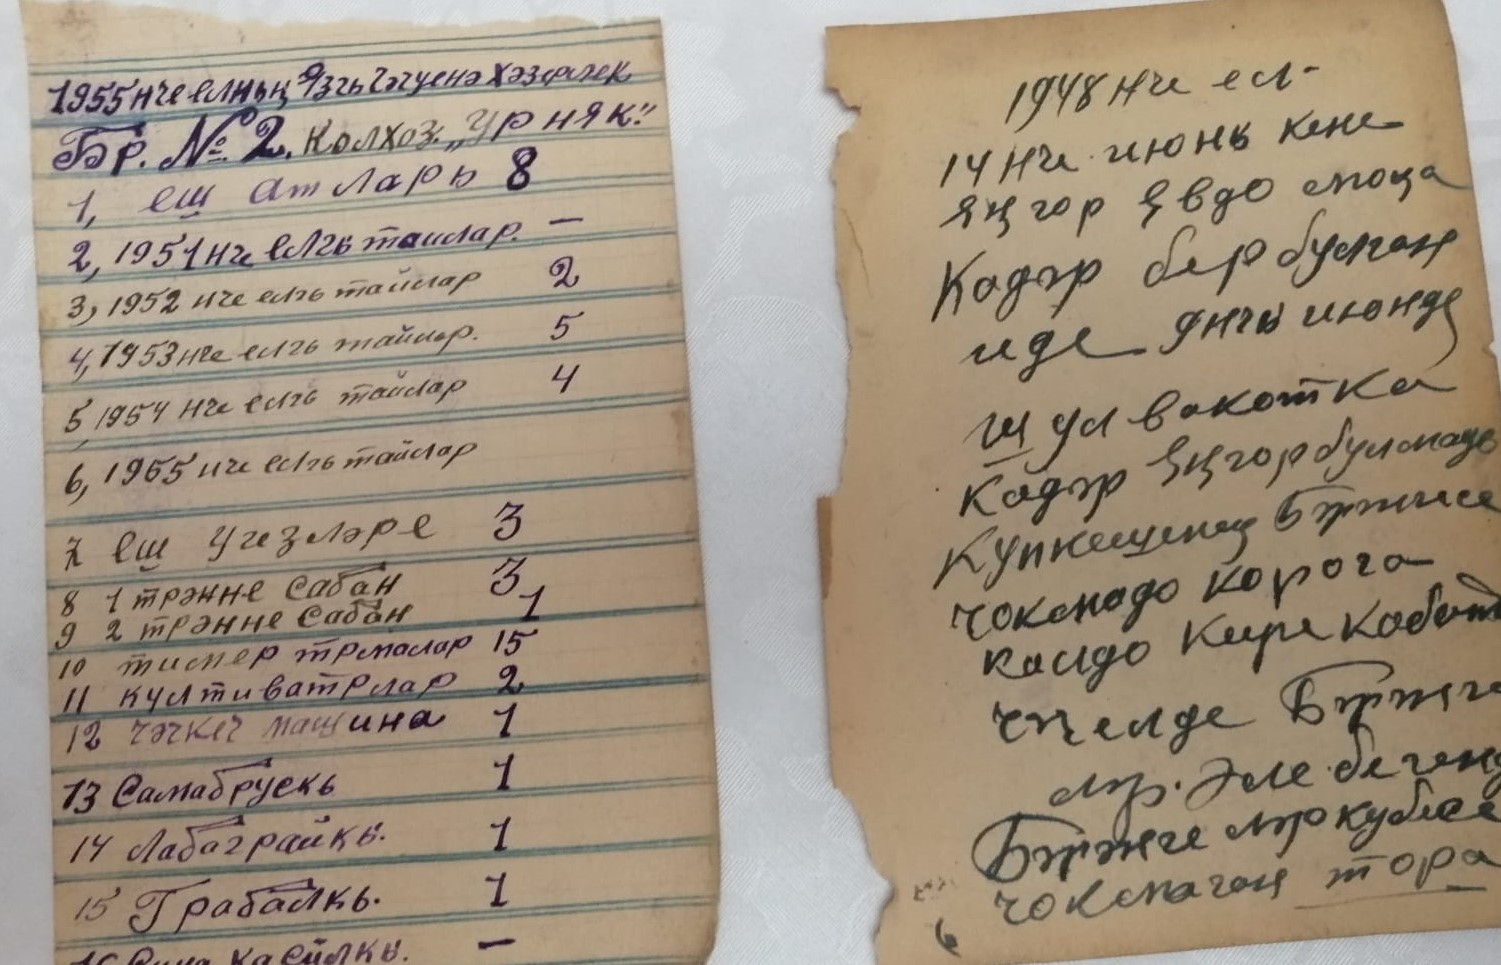 1955 нче елның язгы чәчүенә хәзерлек
Бр. № 2. Колхоз „Урняк"
1, еш атлары 8
2, 1951 нче елгы тайлар. —
3, 1952 нче елгы тайлар 2
4, 1953 нче елгы тайлар. 5
5, 1954 нче елгы тайлар 4
6, 1955 нче елгы тайлар
7 еш үгезләре 3
8 1 трәнне сабан 3
9 2 трәнне сабан 1
10 тимер трмалар 15
11 културатрлар 2
12 чәчкеч машина 1
13 Самабрускы 1
14 Лабаграйкы. 1
15 Грабалкы. 1
16 касилкы. —
1948 нче ел
14 нче июнь кене
яңгор явдо моңа
Кадәр бер булган
иде 9нчы июнде
шул вакотка
кадәр яңгор булмадо
Күпкешенең Бәрәңгесе
чокмадо корога
калдо кире кабат
чәчелде Бәрәңге
ләр. Әле бегенд
Бәрәңгеләр кубесе
чокмаган тора